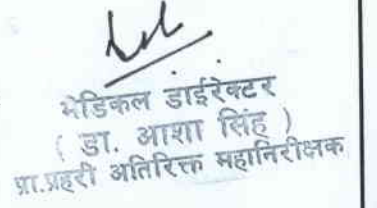 मेडिकल डाईरेक्टर
( डा. आशा सिंह )
प्रा.प्रहरी अतिरिक्त महानिरीक्षक